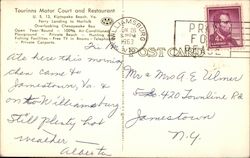 Tourinns Motor Court and Restaurant
U. S. 13, Kiptopeke Beach, Va.
Ferry Landing to Norfolk
Overlooking Chesapeake Bay
Open Year Round - 100% Air-Conditioned
Playground - Private Beach
Fishing Facilities - Free TV in Rooms - Telephone
- Private Carports
WILLIAMSBURG
1963
PRA
FO
PE
POST CARD
Ate here this morning
then came to
Jamestown, Va. &
on to Williamsburg
Still plenty hot
weather -
Alberta
Mr & Mrs A E Ulmer
420 Townline Rd
Jamestown
N.Y.